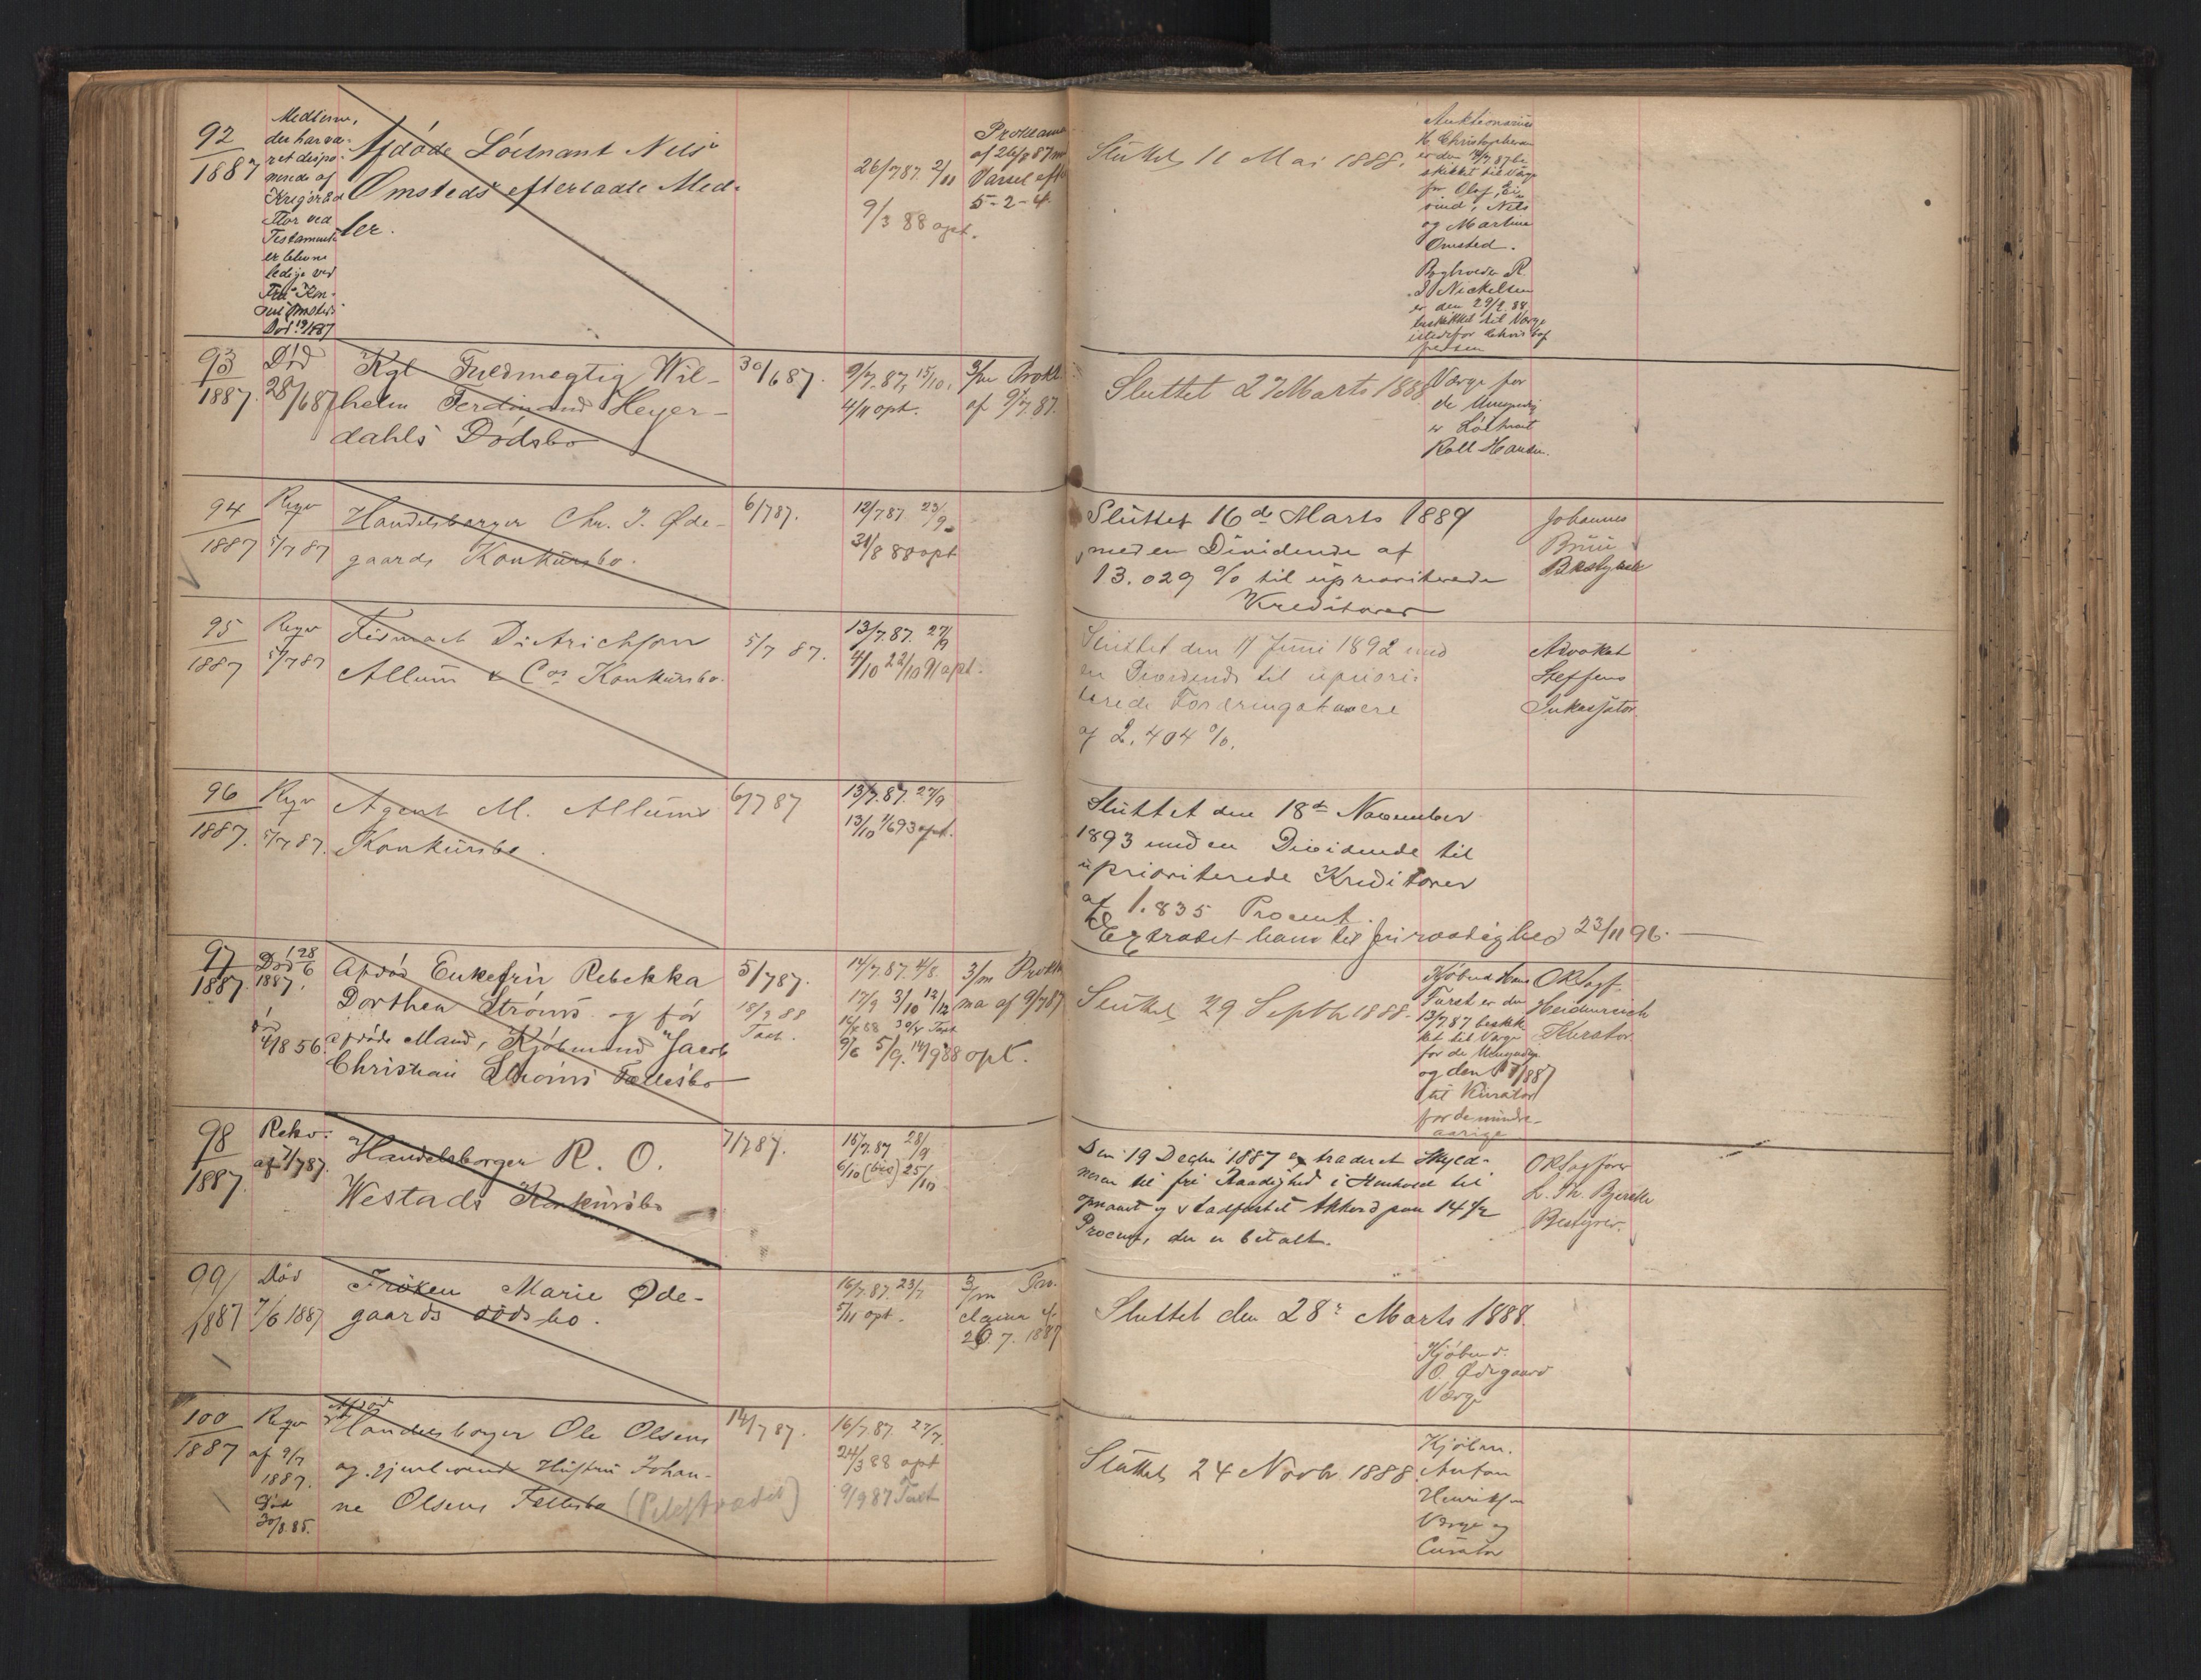 92
1887
Midlerne,
der har væ-
ret dispo-
nerede af
Krigsraad
Flor ved
Testamente
er blevne
ledige ved
Fru Kon-
sul Omsteds
Død 19/1 87
Afdøde Löitnant Nils
Omsteds efterladte Med-
ler.
26/7 87. 2/11
9/3 88 opt.
Proklama
af 26/7 87 m
Varsel efter
5-2-4.
Sluttet 11 Mai 1888.
Auktionarius
H. Christophersen
er den 14/7 87 be-
skikket til Værge
for Olaf, Ei-
vind, Nils
og Martine
Omsted.
R.
Nickelsen
er den 29/2 88
beskikket til Værge
istedetfor
93
1887.
Død
28/6 87
Kgl Fuldmegtig Wil-
helm Ferdinand Heyer-
dahls Dødsbo
30/6 87.
9/7. 87, 15/10,
4/11 opt.
3/m Prokl.
af 9/7. 87.
Sluttet 27 Marts 1888
Værge for
de Umyndig
er Löitnant
Roll Hansen.
94
1887
Reqv
5/7 87
Handelsborger Chr. J. Øde-
gaards Konkursbo.
6/7 87.
12/7 87 23/9
31/8 88 opt
Sluttet 16de Marts 1889
med en Dividende af
13.029 % til uprioriterede
Kreditorer
Johannes
Bruu
Bestyrer
95
1887
Reqv
5/7 87
Firmaet Dietrichson
Allum & Cos Konkursbo.
5/7 87.
13/7. 87. 27/9
4/10 22/10 91 opt.
Sluttet den 11 Juni 1892 med
en Dividende til upriori-
terede Fordringshavere
af 2.404 %.
Advokat
Steffens
Inkassator
96
1887.
Reqv
5/7 87.
Agent M. Allums
Konkursbo.
6/7 87
13/7. 87. 27/9
13/10 1/6 93 opt.
Sluttet den 18de November
1893 med en Dividende til
uprioriterede Kreditorer
af 1.835 Procent.
Extradet ham til fri raadighed 23/11 96.
97
1887.
Død 28/6
1887.
4/8 56
Afdød Enkefru Rebekka
Dorthea Strøms og før
afdøde Mand, Kjøbmand Jacob
Christian Strøms Fællesbo
5/7 87.
18/9 88
Taxt.
14/7. 87. 4/8.
17/9 3/10 12/12
9/6 5/9. 14/9 88 opt.
3/m Prokla
ma af 9/7 87
Sluttet 29 Septbr 1888.
Kjøbmd Hans
Furst er den
13/7 87 beskik
ket til Værge
for de Umyndige
og den 1887
til Kurator
for de mindre-
aarige
ORSagf.
Heidenreich
Kurator
98
1887.
Rekv:
af 7/7 87.
Handelsborger R. O.
Westads Konkursbo
7/7 87.
15/7. 87 28/9
6/10 (bis) 25/10
Den 19 Decbr 1887 extraderet Skyld-
neren til fri Raadighed i Henhold til
opnaaet og stadfæstet Akkord paa 14 1/2
Procent, der er betalt.
ORSagfører
L. Th. Bjerke
Bestyrer.
99/
1887
Død
7/6 1887
Frøken Marie Øde-
gaards dødsbo.
16/7. 87. 23/7
5/11 opt.
3/m Pro-
clama af
20. 7. 1887
Sluttet den 28de Marts 1888.
Kjøbmd.
O. Ødegaard
Værge
100
1887
Reqv
af 9/7
1887.
Død
30/8. 85.
Afdød
Handelsborger Ole Olsens
og gjenlevende Hustru Johan-
ne Olsens Fællesbo (Pilestrædet)
14/7 87.
16/7. 87. 27/7.
24/3 88 opt
9/9 87 Taxt
Sluttet 24 Novbr 1888.
Kjöbm.
Anton
Henriksen
Værge og
Curator